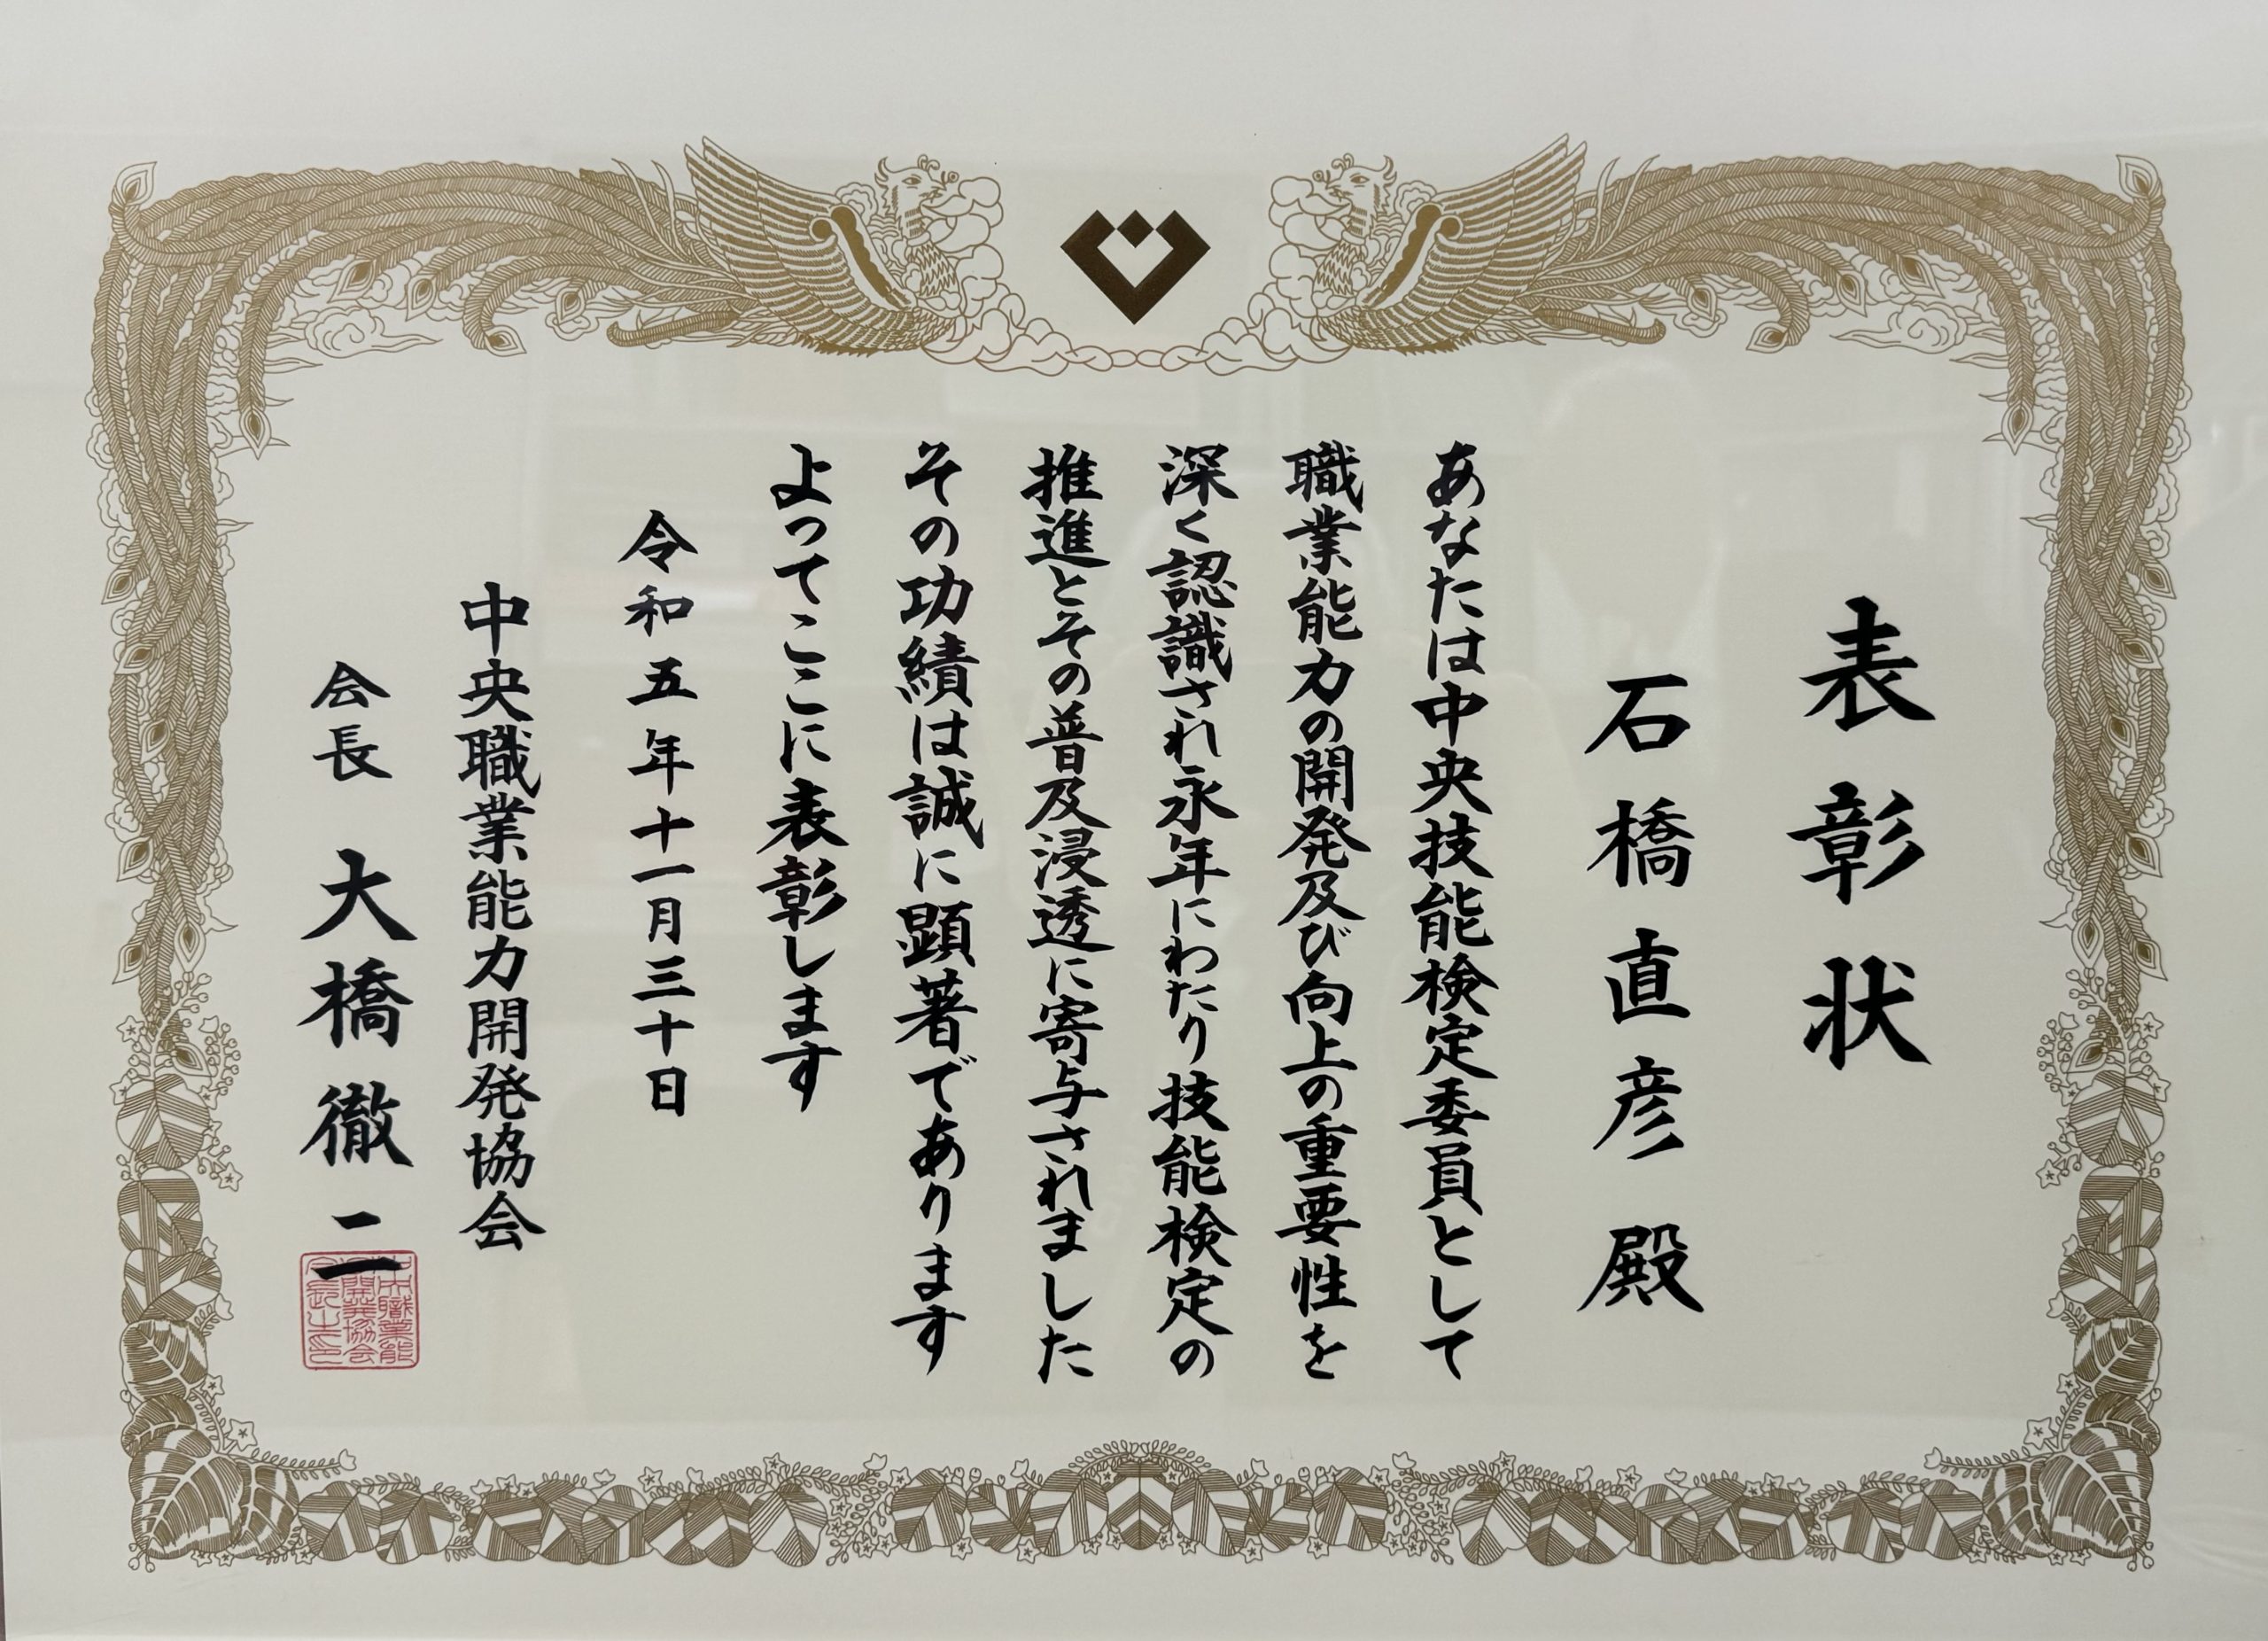 表彰状
石橋直彦殿
あなたは中央技能検定委員として
職業能力の開発及び向上の重要性を
深く認識され永年にわたり技能検定の
推進とその普及浸透に寄与されました
その功績は誠に顕著であります
よってここに表彰します
令和五年十一月三十日
中央職業能力開発協会
会長 大橋徹二
中央職業能
力開発協会
会長之印